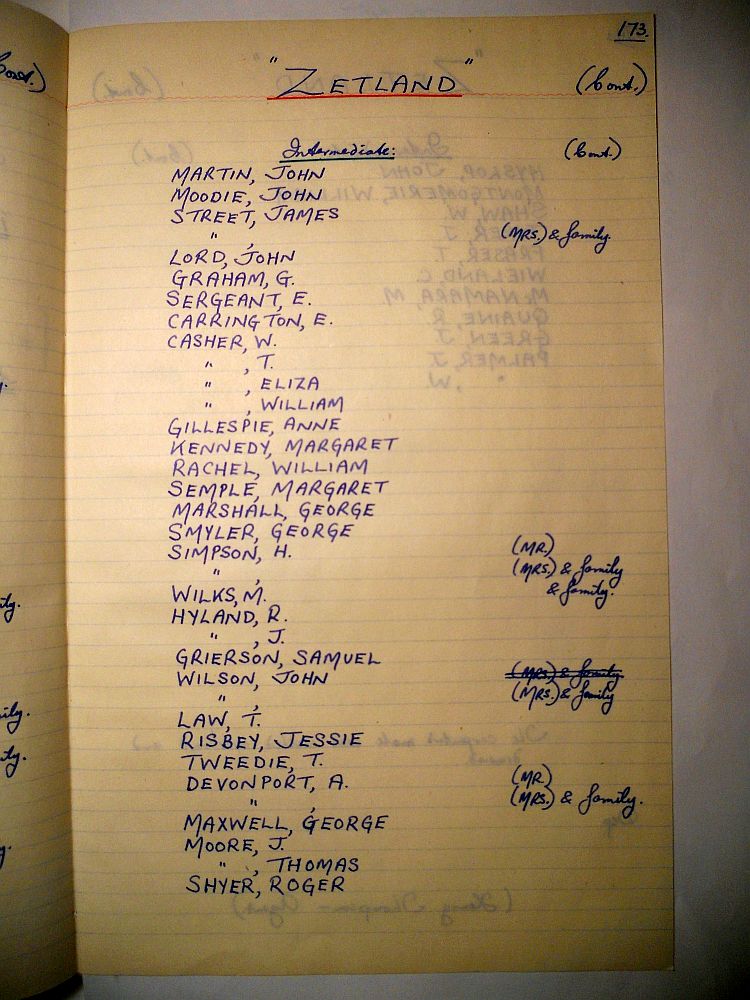 173.
"ZETLAND" (Cont.)
Intermediate: (Cont.)
MARTIN, JOHN
MOODIE, JOHN
STREET, JAMES
" , (MRS.) & family.
LORD, JOHN
GRAHAM, G.
SERGEANT, E.
CARRINGTON, E.
CASHER, W.
" , T.
" , ELIZA
" , WILLIAM
GILLESPIE, ANNE
KENNEDY, MARGARET
RACHEL, WILLIAM
SEMPLE, MARGARET
MARSHALL, GEORGE
SMYLER, GEORGE
SIMPSON, H. (MR.)
" , (MRS.) & family
WILKS, M. & family.
HYLAND, R.
" , J.
GRIERSON, SAMUEL
WILSON, JOHN (MRS.) & family.
" , (MRS.) & family
LAW, T.
RISBEY, JESSIE
TWEEDIE, T.
DEVONPORT, A. (MR.)
" , (MRS.) & family.
MAXWELL, GEORGE
MOORE, J.
" , THOMAS
SHYER, ROGER